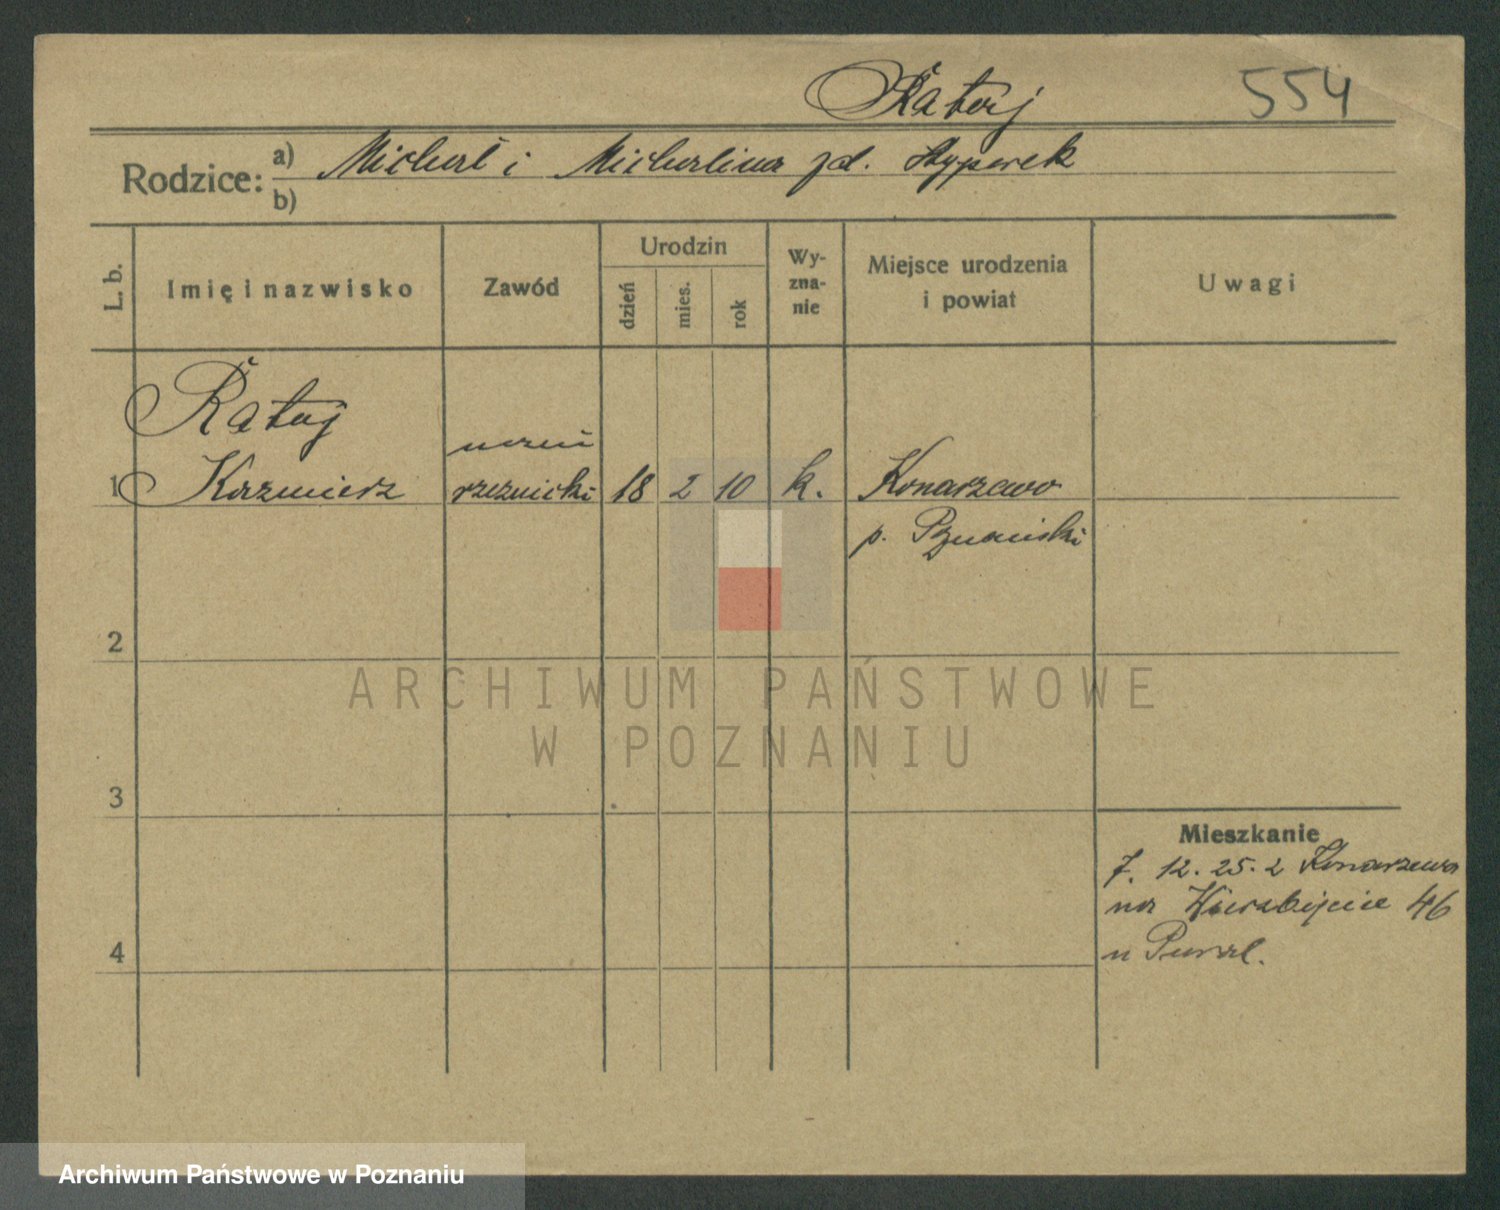 Rataj 554
Rodzice: a) Michał i Michalina zd. Szyperek
b)
L. b. Imię i nazwisko Zawód Urodzin dzień mies. rok Wy-zna-nie Miejsce urodzenia i powiat Uwagi
Rataj
uczeń
1 Kazmierz rzeźnicki 18 2 10 k. Konarzewo
p. Poznański
2
ARCHIWUM PAŃSTWOWE
W POZNANIU
3
Mieszkanie
7. 12. 25. z Konarzewa
na Wierzbięcice 46
u
4
Archiwum Państwowe w Poznaniu